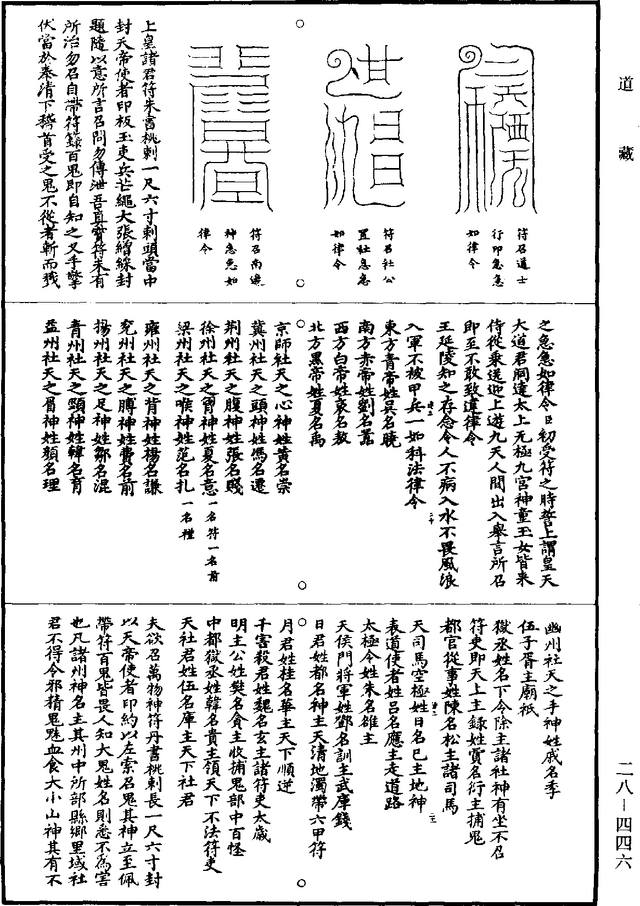 道藏
符召道士
行印急急
如律令
符召社公
置社急急
如律令
符召南遠
神急急如
律令
上皇諸君符朱書桃刺一尺六寸刺頭當中
封天帝使者印板玉吏兵芒繩大張繒綵封
題隨以意所言召問勿傳泄吾真寶符未有
所治勿召自帶符籙百鬼即自知之叉手擎
伏當於泰清下稽首受之鬼不從者斬而戮
之急急如律令日初受符之時誓上謂皇天
大道君洞達太上无極九宮神童玉女皆來
侍從乘送迎上遊九天人間出入舉言所召
即至不敢致違律令
王延陵知之存念令人不病入水不畏風浪
入軍不被甲兵一如科法律令
東方青帝姓吳名曉
南方赤帝姓劉名嵩
西方白帝姓袁名敖
北方黑帝姓夏名禹
京師社天之心神姓黃名崇
冀州社天之頭神姓馮名遷
荊州社天之腹神姓張名賤
徐州社天之胃神姓夏名意一名符一名首
梁州社天之喉神姓范名扎一名種
雍州社天之背神姓楊名謙
兗州社天之膊神姓費名前
揚州社天之足神姓鄒名混
青州社天之頸神姓韓名育
益州社天之眉神姓顏名理
幽州社天之手神姓戚名季
伍子胥主廟祇
獄丞姓名下今除主諸社神有坐不召
符吏即天上主錄姓賈名衍主捕鬼
都官從事姓陳名松主諸司馬
天司馬空極姓日名巳主地神
表道使者姓呂名應主走道路
太極令姓朱名雄主
天侯門將軍姓鄧名訓主武庫錢
日君姓都名神主天清地濁帶六甲符
月君姓桂名華主天下順逆
千害殺君姓魏名玄主諸符吏太歲
明主公姓樊名貪主收捕鬼部中百怪
中都獄丞姓韓名貴主領天下不法符吏
天社君姓伍名庫主天下社君
夫欲召萬物神符丹書桃刺長一尺六寸封
以天帝使者印約以左索召鬼其神立至佩
帶符百鬼皆畏人知大鬼姓名則悉不為害
也凡諸州神名主其州中所部縣鄉里域社
君不得令邪精鬼魅血食大小山神其有不
二八—四四六